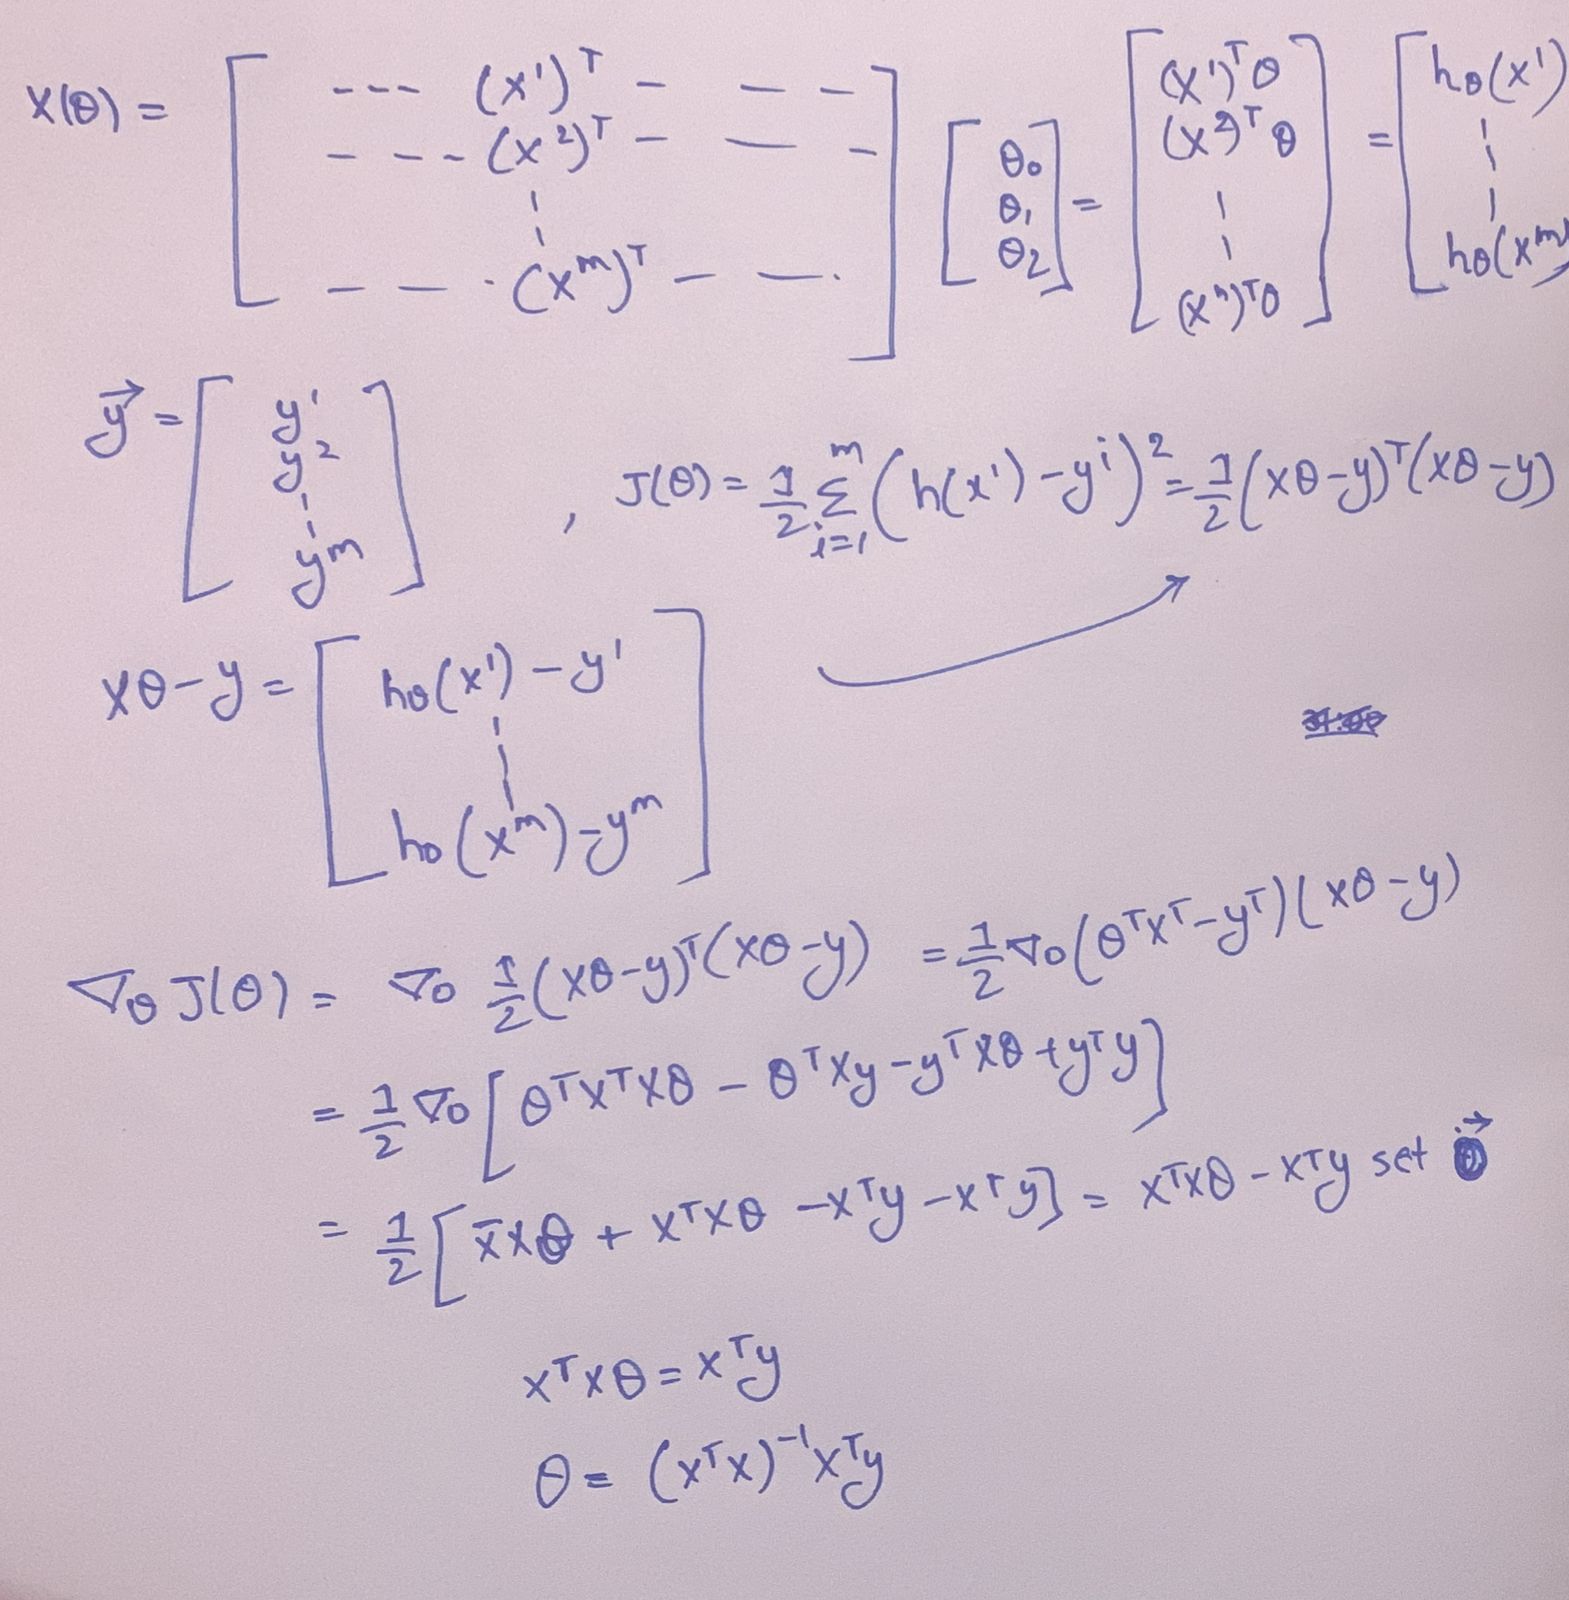 X(θ) = [ --- (x¹)ᵀ - - - ; - -- - (x²)ᵀ - — - ; ¦ ; - - - · (xᵐ)ᵀ - - · ] [ θ₀ ; θ₁ ; θ₂ ] = [ (x¹)ᵀθ ; (x²)ᵀθ ; ¦ ; (xⁿ)ᵀθ ] = [ hθ(x¹) ; ¦ ; hθ(xᵐ)
y⃗ = [ y¹ ; y² ; ¦ ; yᵐ ] , J(θ) = 1/2 Σᵢ₌₁ᵐ (h(x¹) - yⁱ)² = 1/2 (xθ-y)ᵀ(xθ-y)
xθ-y = [ hθ(x¹) - y¹ ; ¦ ; hθ(xᵐ) - yᵐ ]
∇θ J(θ) = ∇θ 1/2 (xθ-y)ᵀ(xθ-y) = 1/2 ∇θ (θᵀxᵀ-yᵀ)(xθ-y)
= 1/2 ∇θ [ θᵀxᵀxθ - θᵀxy - yᵀxθ + yᵀy ]
= 1/2 [ x̄xθ + xᵀxθ - xᵀy - xᵀy ] = xᵀxθ - xᵀy set 0⃗
xᵀxθ = xᵀy
θ = (xᵀx)⁻¹xᵀy